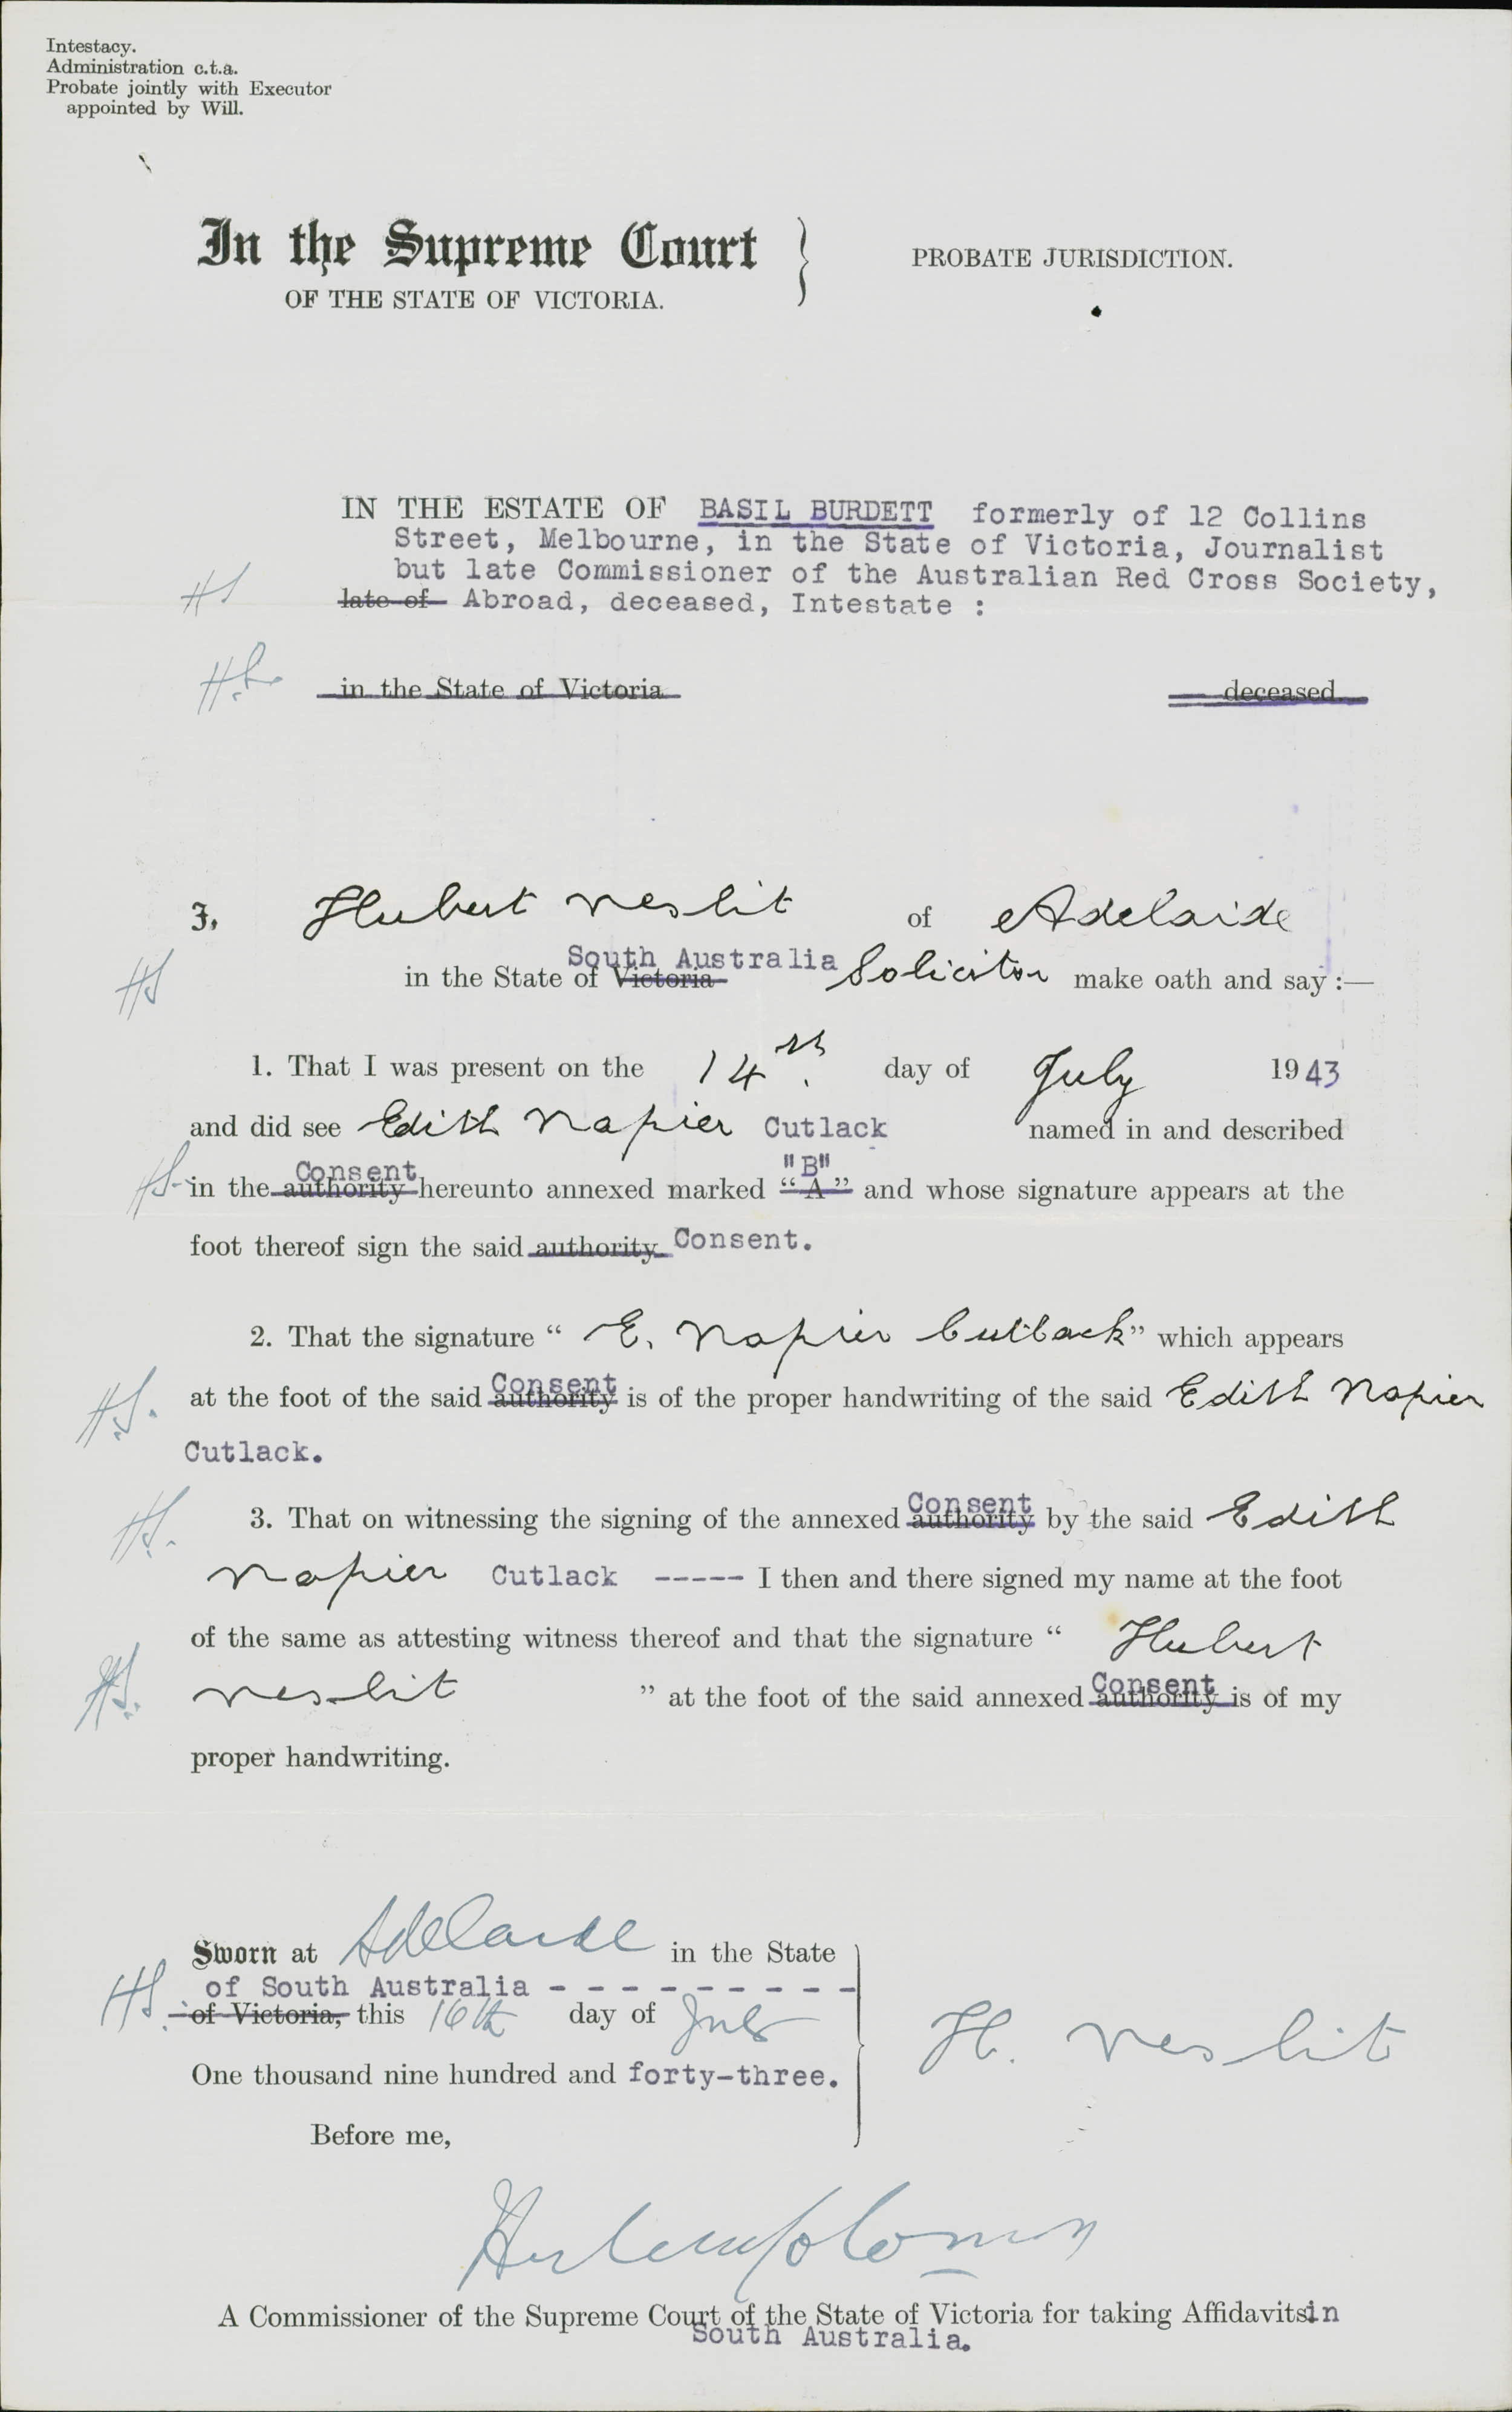 Intestacy.
Administration c.t.a.
Probate jointly with Executor
appointed by Will.
In the Supreme Court } PROBATE JURISDICTION.
OF THE STATE OF VICTORIA.
IN THE ESTATE OF BASIL BURDETT formerly of 12 Collins
Street, Melbourne, in the State of Victoria, Journalist
but late Commissioner of the Australian Red Cross Society,
HS late of Abroad, deceased, Intestate :
H.S. in the State of Victoria deceased.
I, Hubert Nesbit of Adelaide
South Australia
HS in the State of Victoria Solicitor make oath and say :—
1. That I was present on the 14th. day of July 1943
and did see Edith Napier Cutlack named in and described
Consent "B"
HS in the authority hereunto annexed marked “A” and whose signature appears at the
foot thereof sign the said authority Consent.
2. That the signature “ E. Napier Cutlack” which appears
Consent
HS. at the foot of the said authority is of the proper handwriting of the said Edith Napier
Cutlack.
Consent
HS. 3. That on witnessing the signing of the annexed authority by the said Edith
Napier Cutlack ----- I then and there signed my name at the foot
of the same as attesting witness thereof and that the signature “ Hubert
Consent
HS. Nesbit ” at the foot of the said annexed authority is of my
proper handwriting.
Sworn at Adelaide in the State
of South Australia - - - - - - - - -
HS. of Victoria, this 16th day of July
One thousand nine hundred and forty-three.
H. Nesbit
Before me,
A Commissioner of the Supreme Court of the State of Victoria for taking Affidavits in
South Australia.